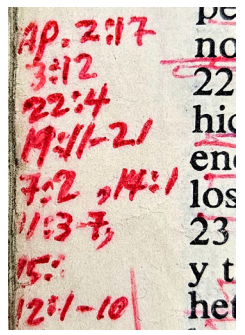 AP. 2:17
3:12
22:4
19:11-21
7:2 , 14:1
11:3-7,
15:
12:1-10
pe
no
22
hic
enc
los
23
y t
het